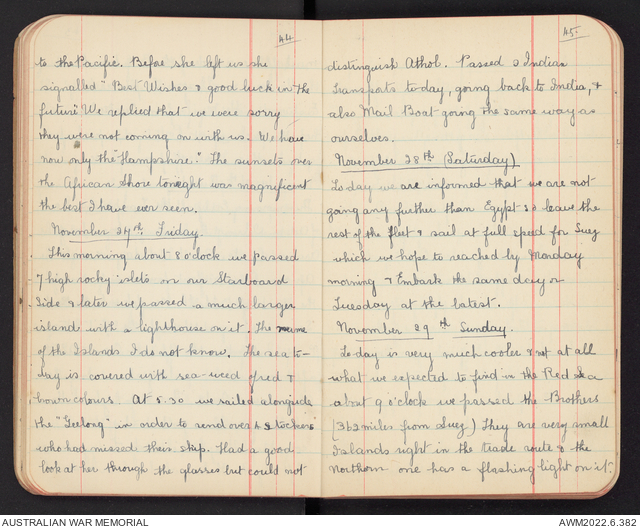 44.
to the Pacific. Before she left us she
signalled "Best Wishes & good luck in the
future" We replied that we were sorry
they were not coming on with us. We have
now only the "Hampshire." The sunsets over
the African Shore tonight was magnificent
the best I have ever seen.
November 27th Friday.
This morning about 8 o'clock we passed
7 high rocky islets on our Starboard
Side & later we passed a much larger
island with a lighthouse on it. The name
of the Islands I do not know. The sea to-
day is covered with sea-weed of red &
brown colours. At 5.30 we sailed alongside
the "Geelong" in order to send over stokers
who had missed their ship. Had a good
look at her through the glasses but could not
45.
distinguish Athol. Passed 3 Indian
Transports today, going back to India, &
also Mail Boat going the same way as
ourselves.
November 28th (Saturday)
To day we are informed that we are not
going any further than Egypt so leave the
rest of the fleet & sail at full speed for Suez
which we hope to reached by Monday
morning & Embark the same day or
Tuesday at the latest.
November 29th Sunday.
To day is very much cooler & not at all
what we expected to find in the Red Sea
about 9 o'clock we passed the Brothers
(362 miles from Suez) They are very small
Islands right in the trade route & the
Northern one has a flashing light on it.
AUSTRALIAN WAR MEMORIAL
AWM2022.6.382